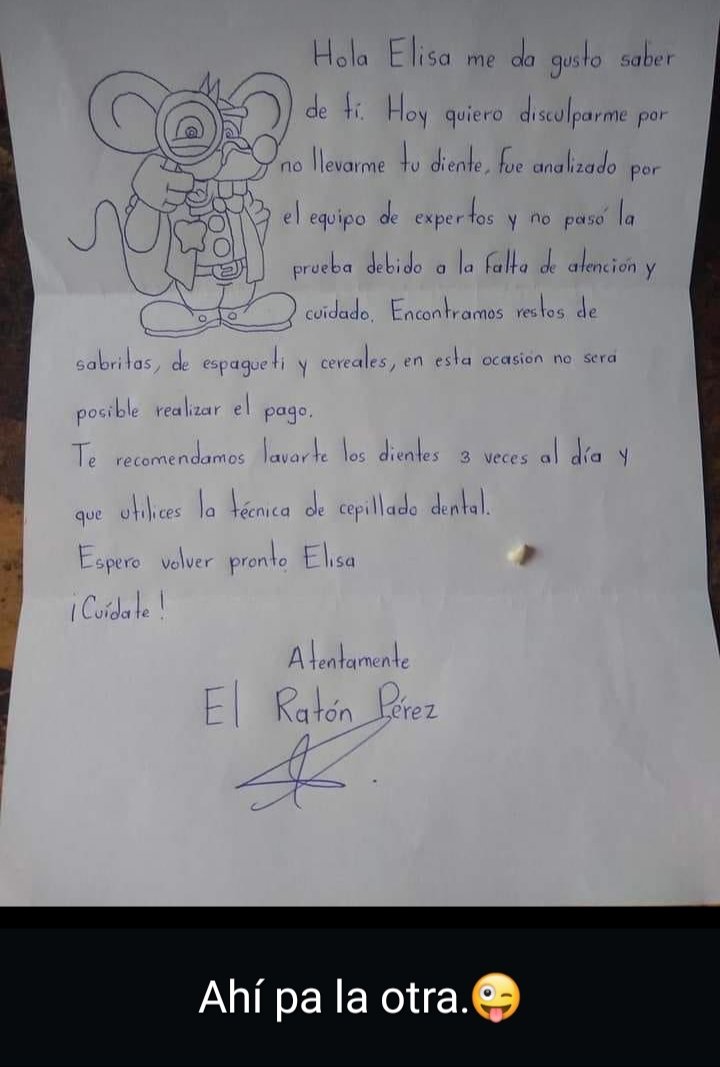 Hola Elisa me da gusto saber
de ti. Hoy quiero disculparme por
no llevarme tu diente, fue analizado por
el equipo de expertos y no pasó la
prueba debido a la falta de atención y
cuidado. Encontramos restos de
sabritas, de espagueti y cereales, en esta ocasión no será
posible realizar el pago.
Te recomendamos lavarte los dientes 3 veces al día y
que utilices la técnica de cepillado dental.
Espero volver pronto Elisa
¡Cuídate!
Atentamente
El Ratón Pérez
Ahí pa la otra.😜